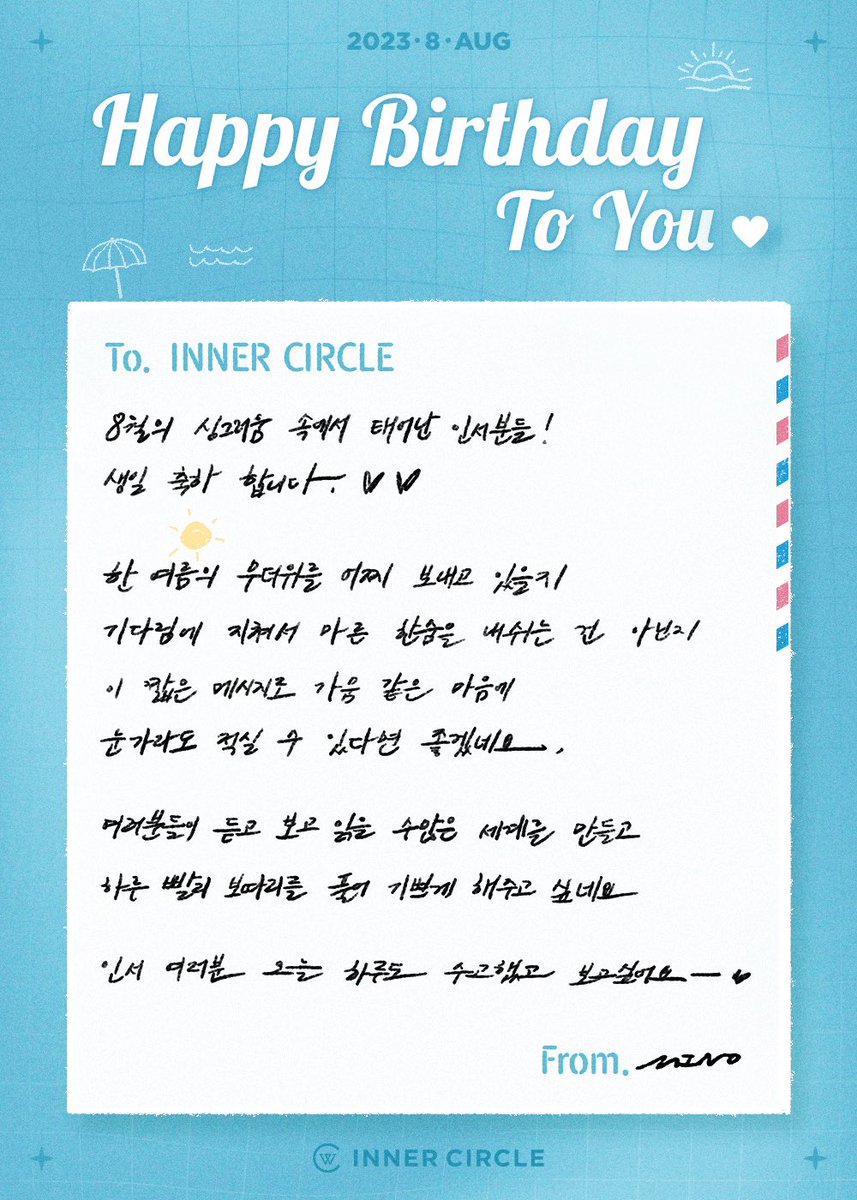 2023·8·AUG
Happy Birthday
To You
To. INNER CIRCLE
8월의 싱그러움 속에서 태어난 인서분들!
생일 축하 합니다-!
한 여름의 무더위를 어찌 보내고 있을지
기다림에 지쳐서 마른 한숨을 내쉬는 건 아닌지
이 짧은 메시지로 가뭄 같은 마음에
눈가라도 적실 수 있다면 좋겠네요.
여러분들이 듣고 보고 읽을 수많은 세계를 만들고
하루 빨리 보따리를 풀어 기쁘게 해주고 싶네요
인서 여러분 오늘 하루도 수고했고 보고싶어요-
From. MINO
INNER CIRCLE